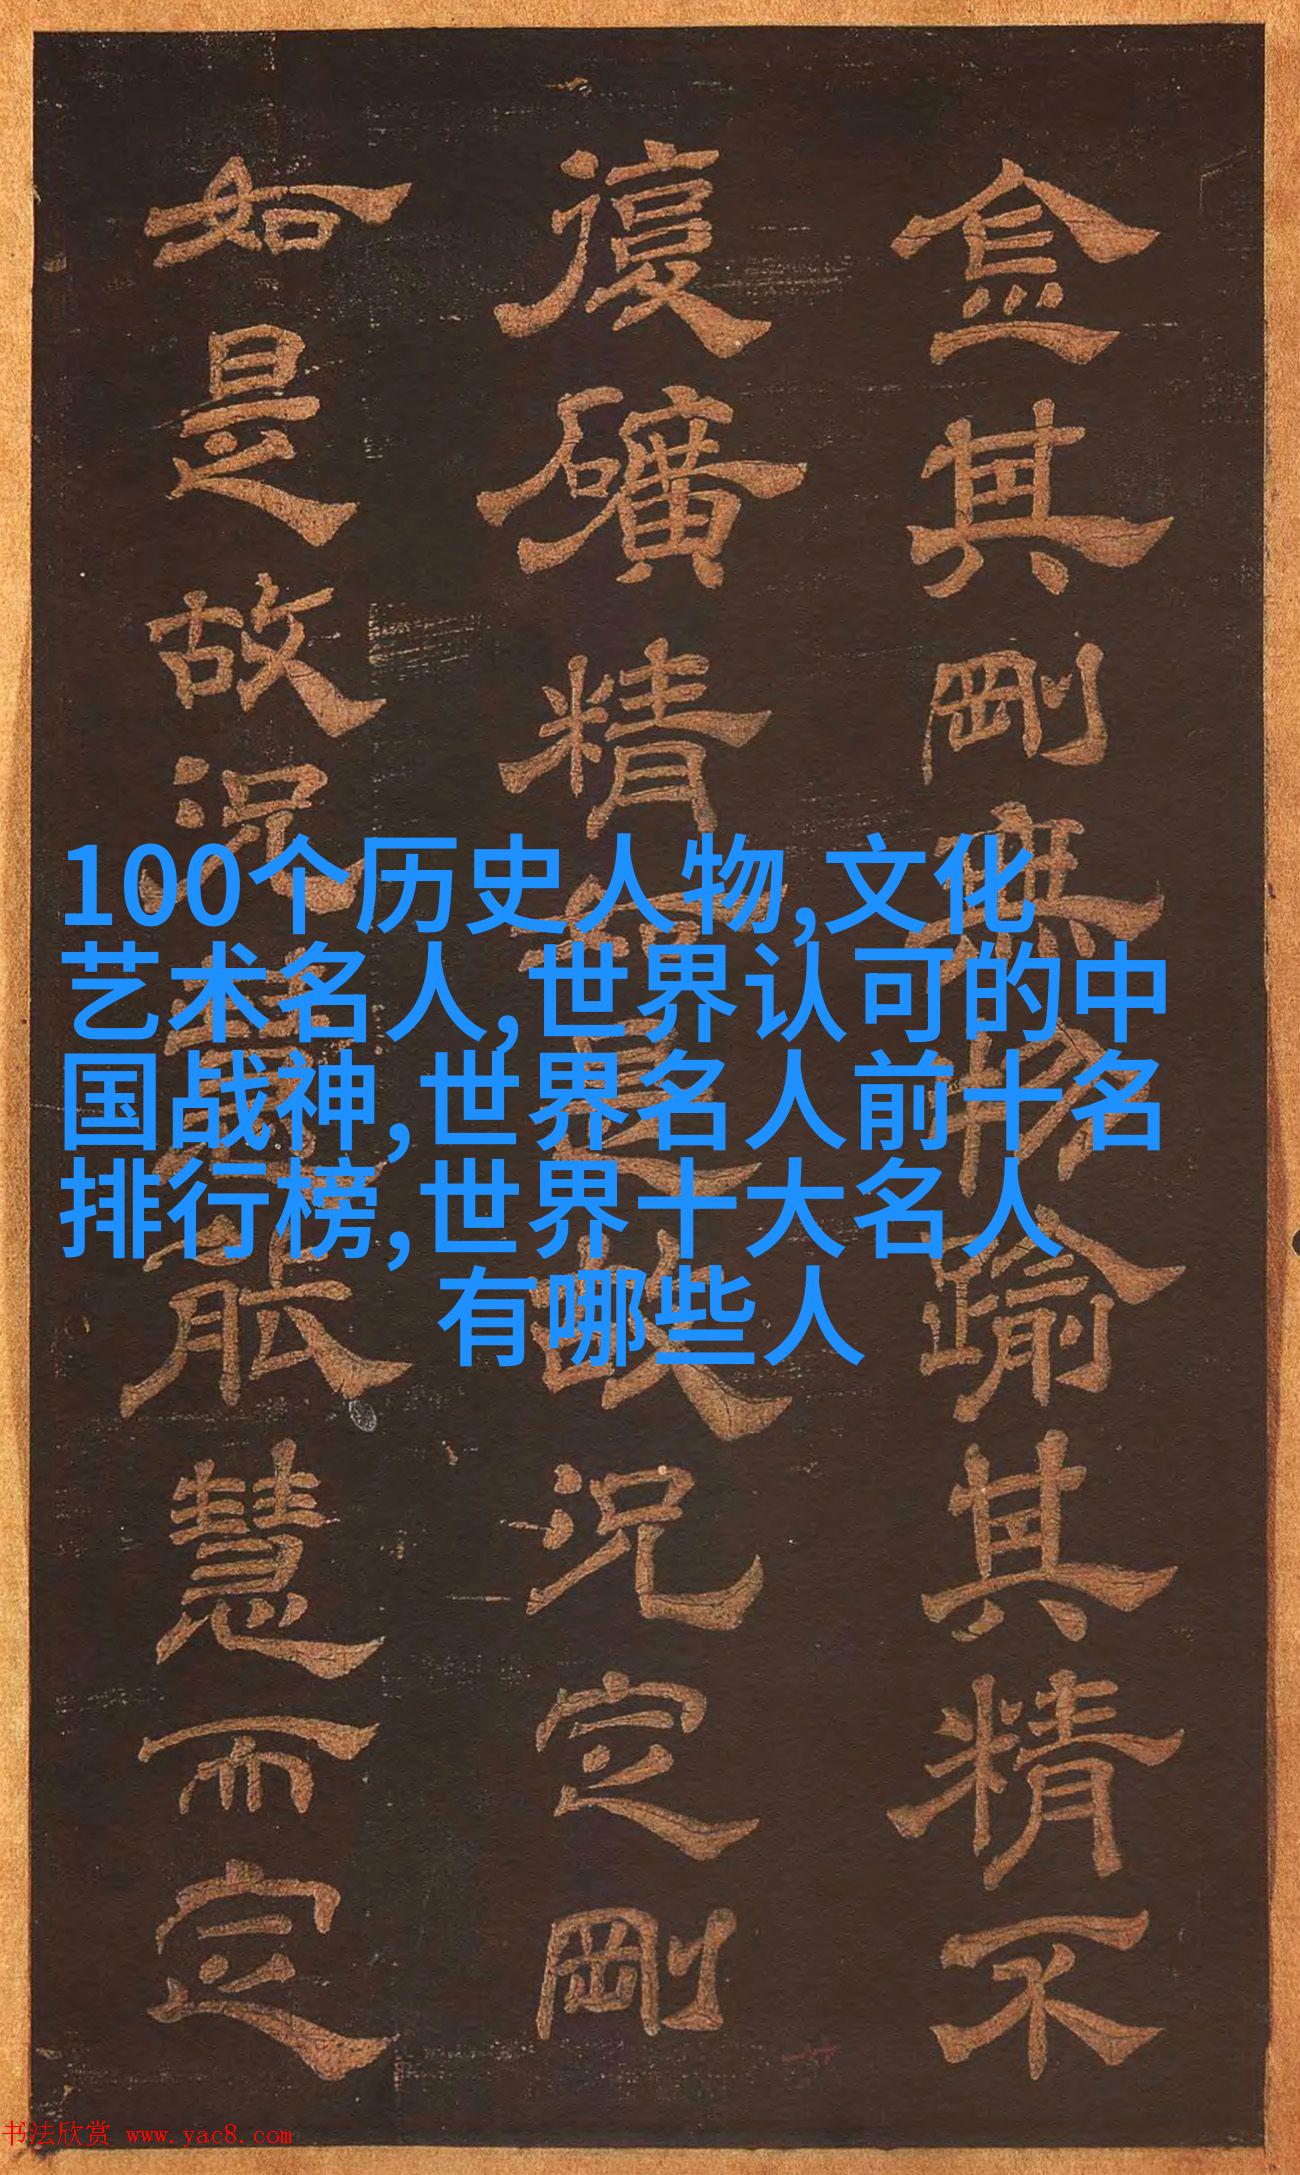 金其剛無物踰其精不
復礦精是故況定剛
如是故況能慧而定
100个历史人物,文化
艺术名人,世界认可的中
国战神,世界名人前十名
排行榜,世界十大名人
有哪些人
书法欣赏 www.yac8.com